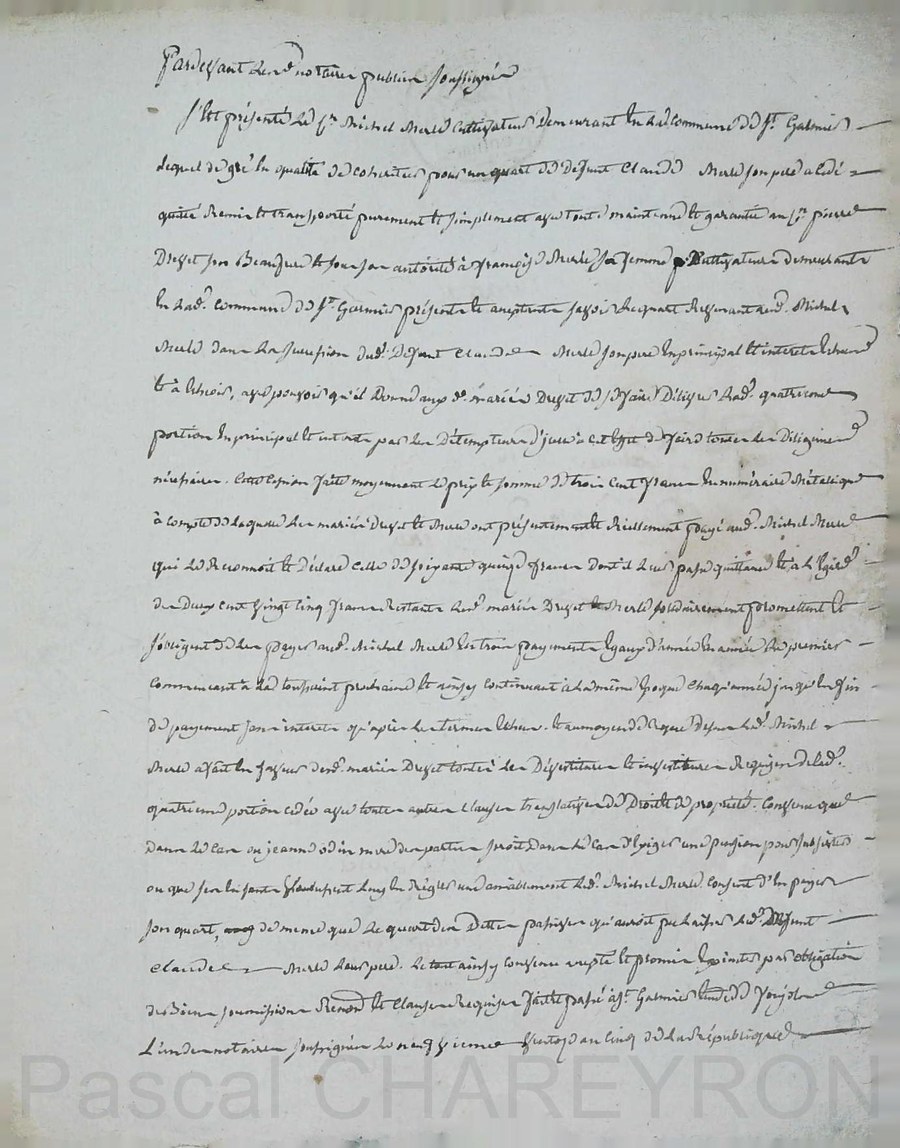 Pardevant les nres notaires publics soussignés
S'est présenté le Sr. Michel Merle cultivateur demeurant en la commune de St. Galmier
lequel de gré en qualité de cohéritier pour un quart de défunt Claude Merle son père a cédé
quitté remis et transporté purement et simplement avec toute maintenue et garantie au Sr. pierre
Drevet son Beaufrere et sous son autorité à françoise Merle sa femme cultivateurs demeurants
en lad. commune de St. Galmier présents et acceptants savoir le quart revenant aud. Michel
Merle dans la succession dud. défunt Claude Merle son pere en principal et interets échus
et à échoir, avec pouvoir qu'il donne auxd. mariés Drevet de se faire délivrer lad. quatrieme
portion en principal et interets par les détempteurs d'icelle à cet effet de faire toutes les diligences
nécessaires. Cette cession faite moyennant le prix et somme de trois cent francs en numéraire métallique
à compte de laquelle les mariés Drevet et Merle ont présentement et réellement payé aud. Michel Merle
qui le reconnoit et déclare celle de soixante quinze francs dont il leur passe quittance et à l'égard
des deux cent vingt cinq francs restants lesd. mariés Drevet et Merle solidairement promettent et
s'obligent de les payer aud. Michel Merle en trois payements égaux d'année en année le premier
commencant à la toussaint prochaine et ainsy continuant à la même époque chaqu'année jusqu'en fin
de payement sans interets qu'après les termes échus. et au moyen de ce que dessus led. Michel
Merle a fait en faveur desd. mariés Drevet toutes les dévestitures et investitures requises de lad.
quatrieme portion cédée avec toutes autres clauses translatives de droits de propriété. Convenu que
dans le cas ou jeanne odin mere des parties seroit dans le cas d'exiger une pension pour subsister
ou que ses enfants la réglés amiablement led. Michel Merle consent d'en payer
son quart, de meme que le quart des dettes passives qu'auroit pu laisser led. Défunt
Claude Merle leur pere. le tout ainsy convenu accepté et promis exécuter par obligation
de Biens soumissions renond. et clauses requises fait et passé à St. Galmier étude de
L'un des notaires soussignés le neuf vieme an cinq de la République
Pascal CHAREYRON